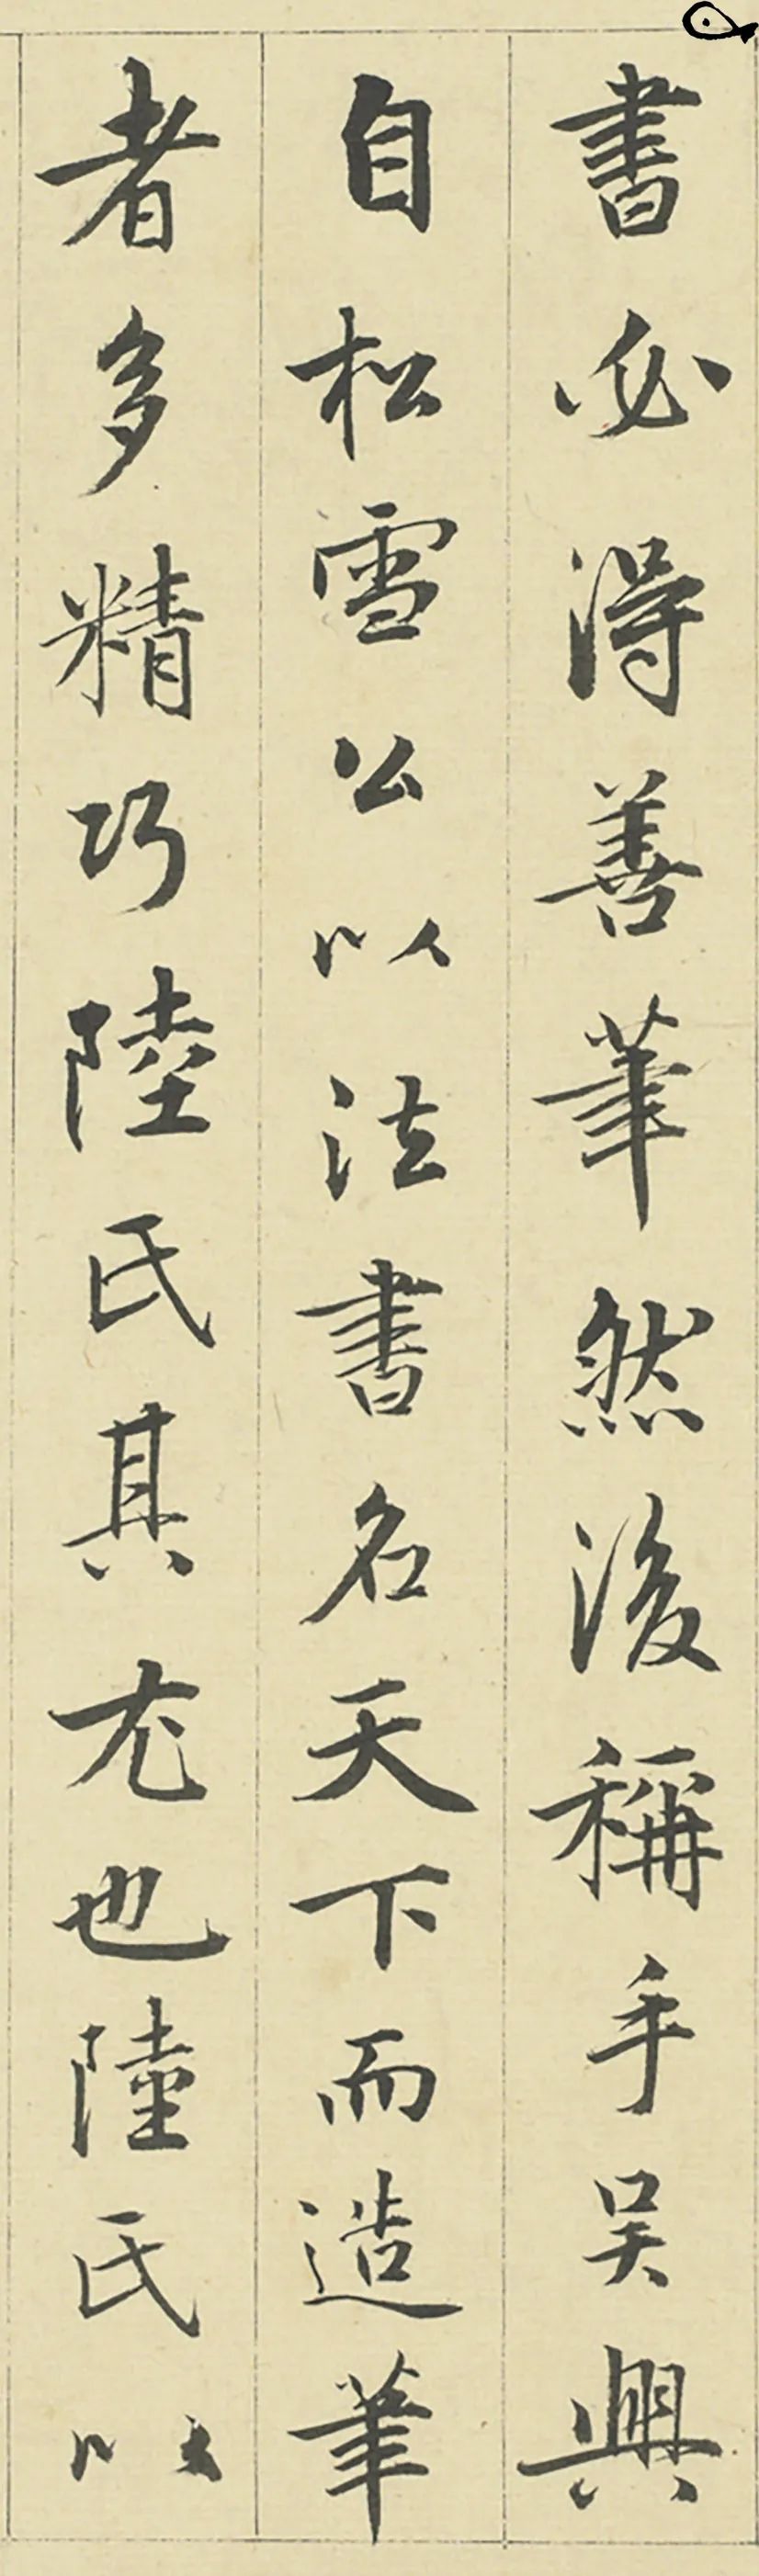 書必得善筆然後稱手吳興
自松雪公以法書名天下而造筆
者多精巧陸氏其尤也陸氏以